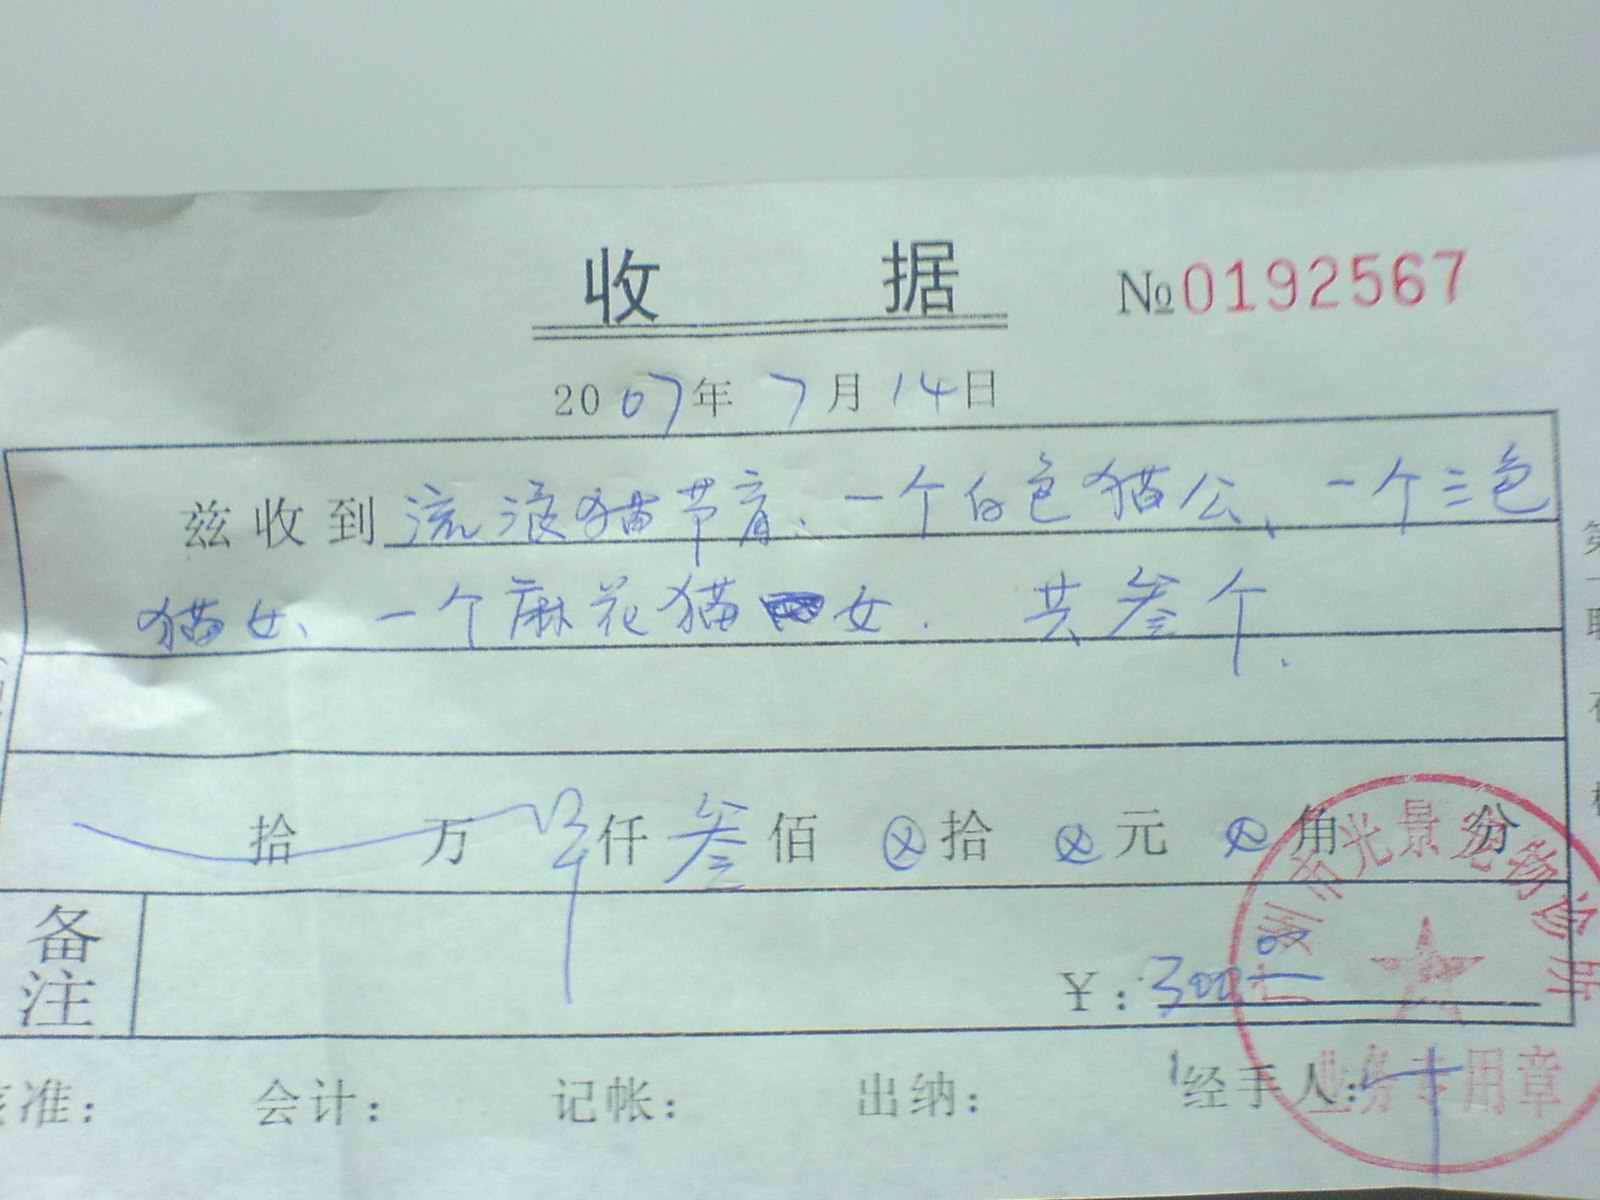 收 据 №0192567
2007年 7月 14日
兹收到流浪猫节育、一个白色猫公、一个三色
猫女、一个麻花猫女. 共叁个.
拾 万 仟 叁 佰 ⊗ 拾 ⊗ 元 ⊗ 角 分
备注
¥:300.00
核准: 会计: 记帐: 出纳: 经手人:
广州市光景宠物诊所
业务专用章